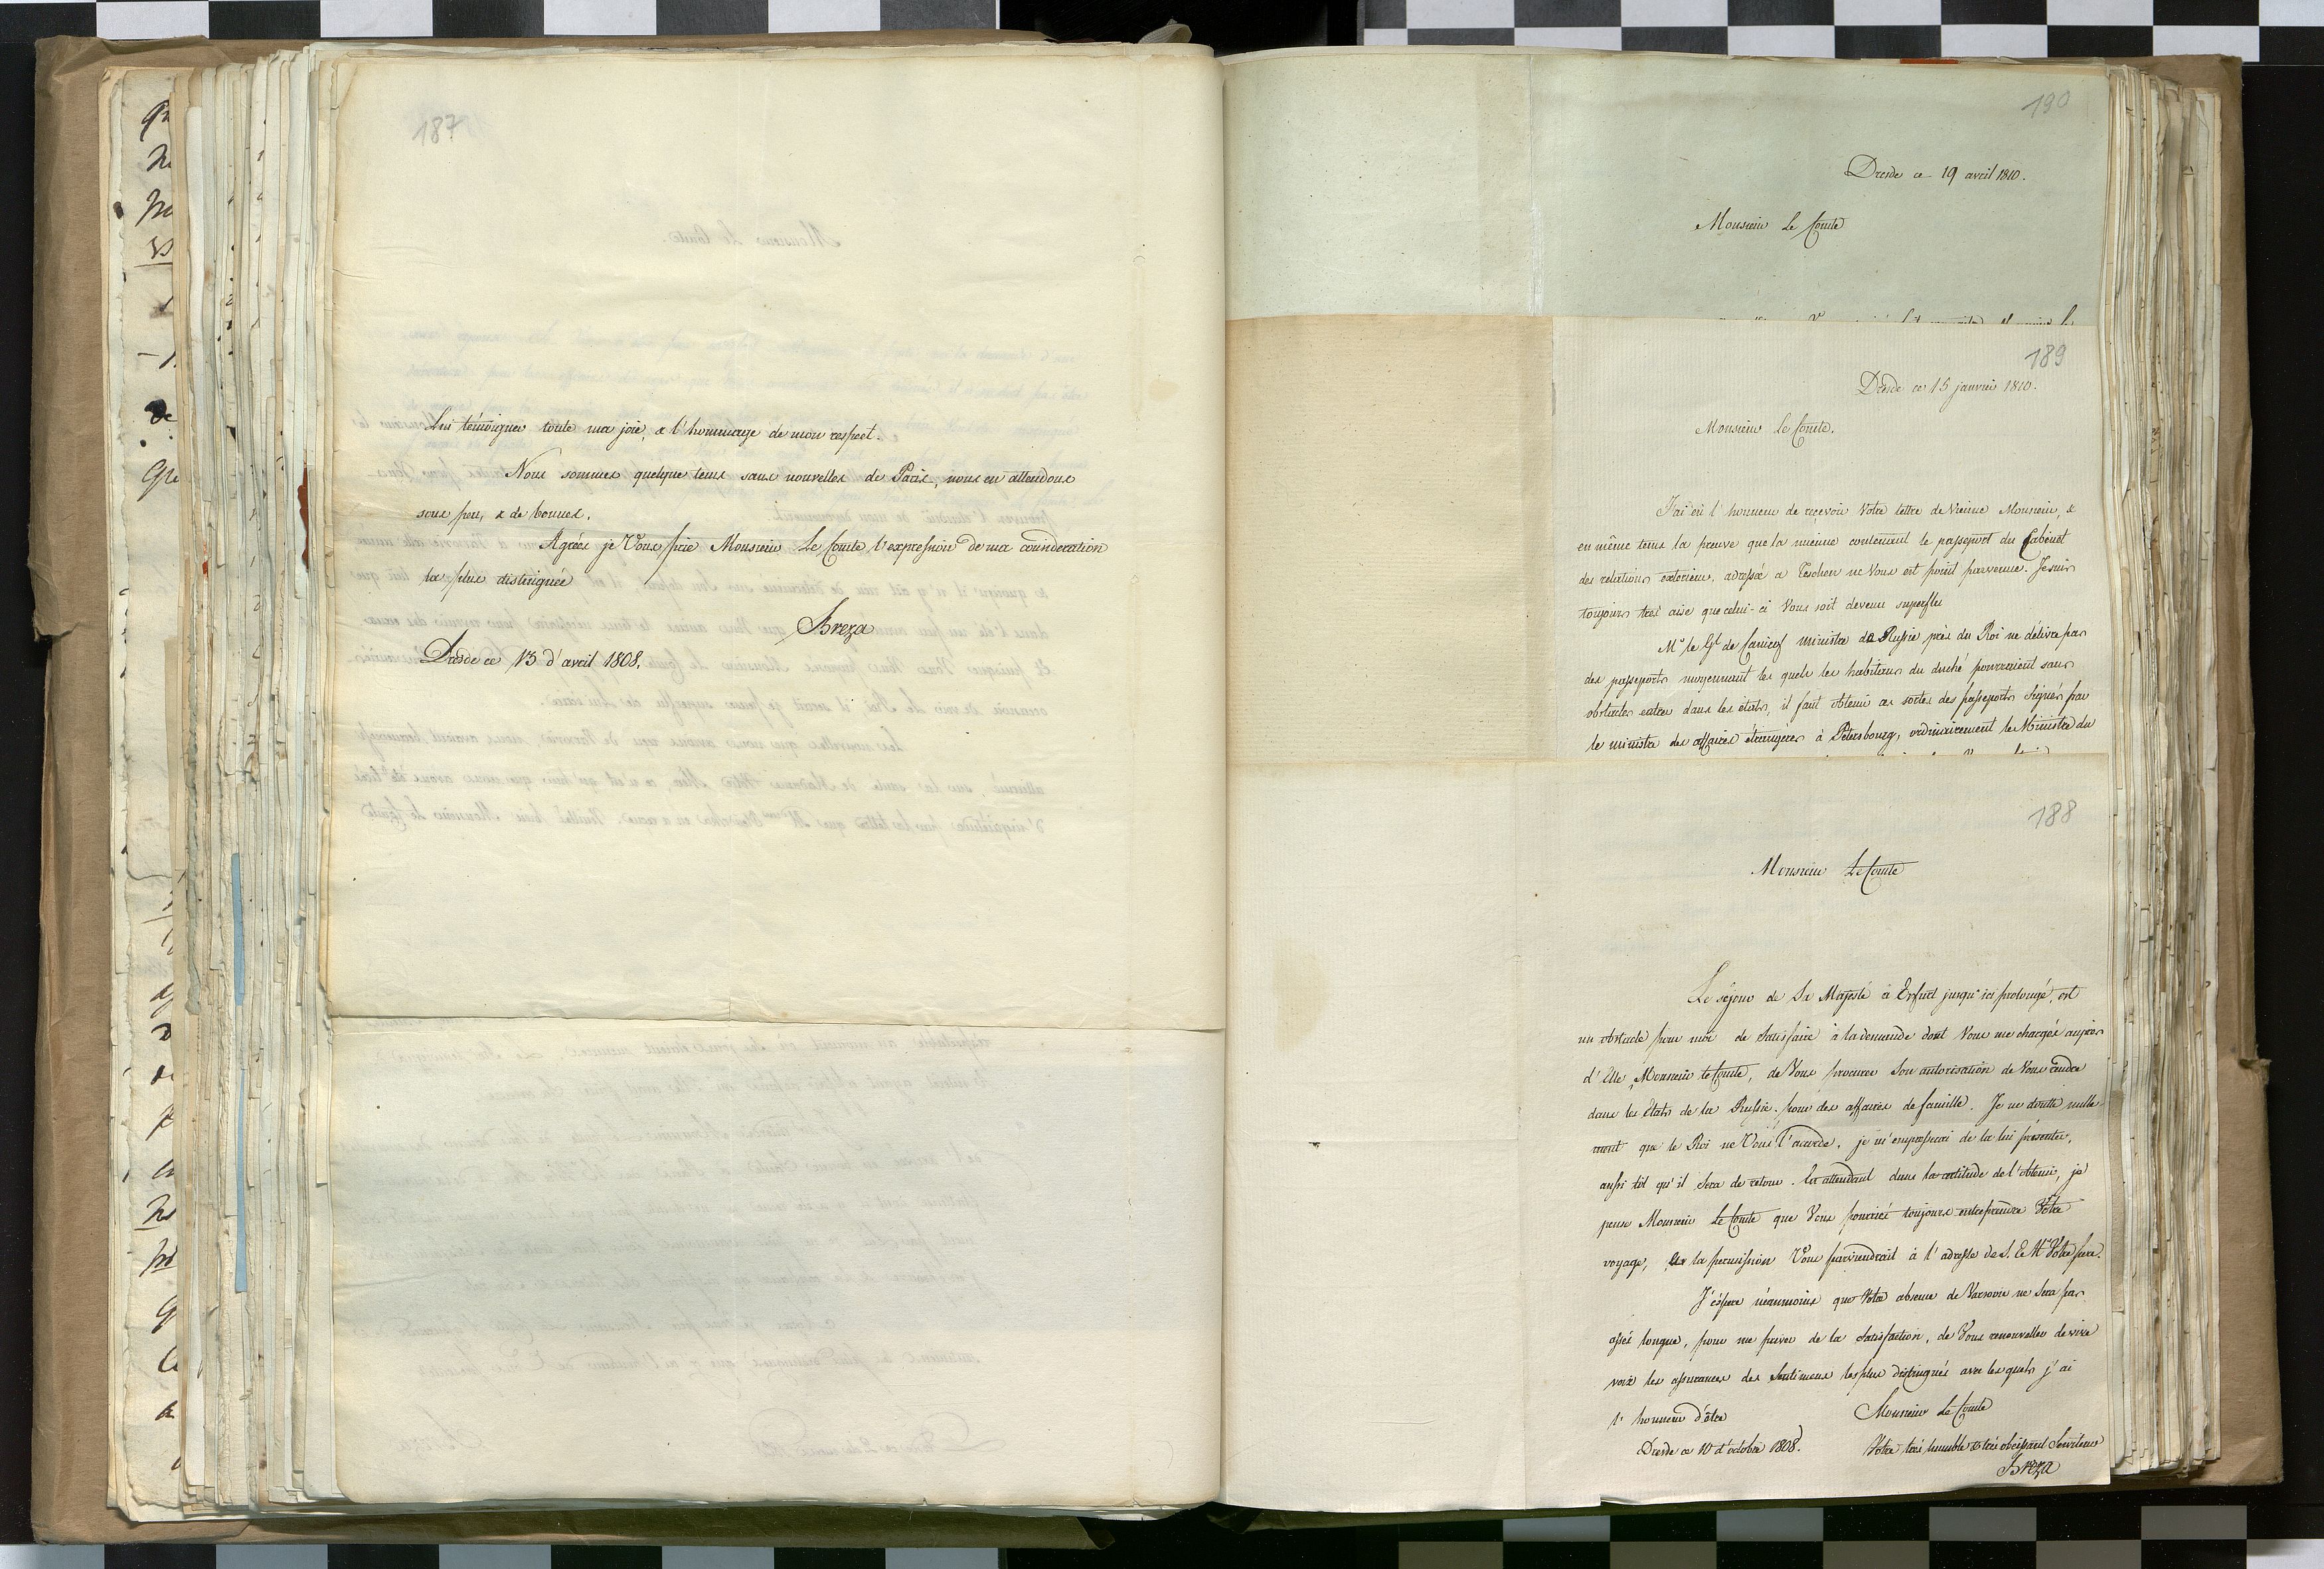 187
Lui témoigner toute ma joie, & l'hommage de mon respect.
Nous sommes quelque tems sans nouvelles de Paris, nous en attendons
sous peu, & de bonnes.
Agréez je Vous prie Monsieur Le Comte l'expression de ma consideration
la plus distinguée
Breza
Dresde ce 13 d'avril 1808.
190
Dresde ce 19 avril 1810.
Monsieur Le Comte
189
Dresde ce 15 janvier 1810.
Monsieur Le Comte.
J'ai eû l'honneur de recevoir Votre lettre de Vienne Monsieur, &
en même tems la preuve que la mienne contenant le passeport du Cabinet
des relations exterieur, adressée a Teschen ne Vous est point parvenue. Je suis
toujours très aise que celui-ci Vous soit devenu superflu
Mr le Gl de Canicof ministre de Russie près du Roi ne délivre pas
des passeports moyennant les quels les habitans du duché pourraient sans
obstacles entrer dans les états, il faut obtenir ces sortes des passeports signés par
le ministre des affaires étrangères à Pétersbourg, ordinairement le Ministre du
188
Monsieur Le Comte
Le séjour de Sa Majesté à Erfurt jusqu'ici prolongé, est
un obstacle pour moi de satisfaire à la demande dont Vous me chargés auprès
d'Elle, Monsieur le Comte, de Vous procurer Son autorisation de Vous rendre
dans les Etats de la Russie pour des affaires de famille. Je ne doute nulle-
ment que le Roi ne Vous l'accorde, je m'empresserai de la lui présenter,
aussi tôt qu'il sera de retour. En attendant dans la certitude de l'obtenir, je
pense Monsieur Le Comte que Vous pourriés toujours entreprendre Votre
voyage, la permission Vous parviendrait à l'adresse de S. E. Mr Votre pere.
J'éspere néanmoins que Votre absence de Varsovie ne sera pas
assés longue, pour me priver de la satisfaction, de Vous renouveller de vive
voix les assurances des sentimens les plus distingués avec les quels j'ai
l'honneur d'être
Monsieur Le Comte
Dresde ce 10 d'octobre 1808.
Votre très humble & très obéissant Serviteur
Breza